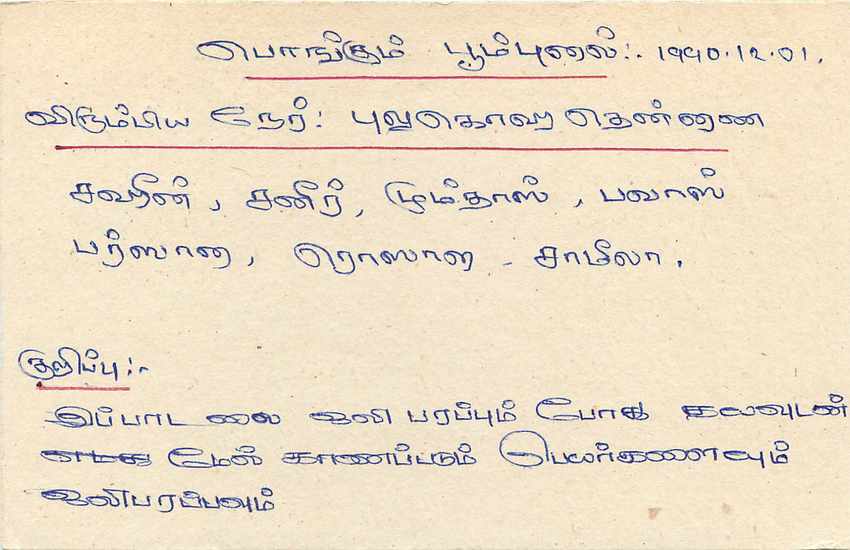 பொங்கும் பூம்புனல்:. 1990.12.01.
விரும்பிய நேர்: புலுகொஹ தென்ணை
சஹீன், சனீர், மும்தாஸ், பவாஸ்
பர்ஸானா, ரொஸானா - சாமீலா.
குறிப்பு:-
இப்பாடலை ஒலி பரப்பும் போது தயவுடன்
மேல் காணப்படும் பெயர்கணையும்
ஒலிபரப்பவும்